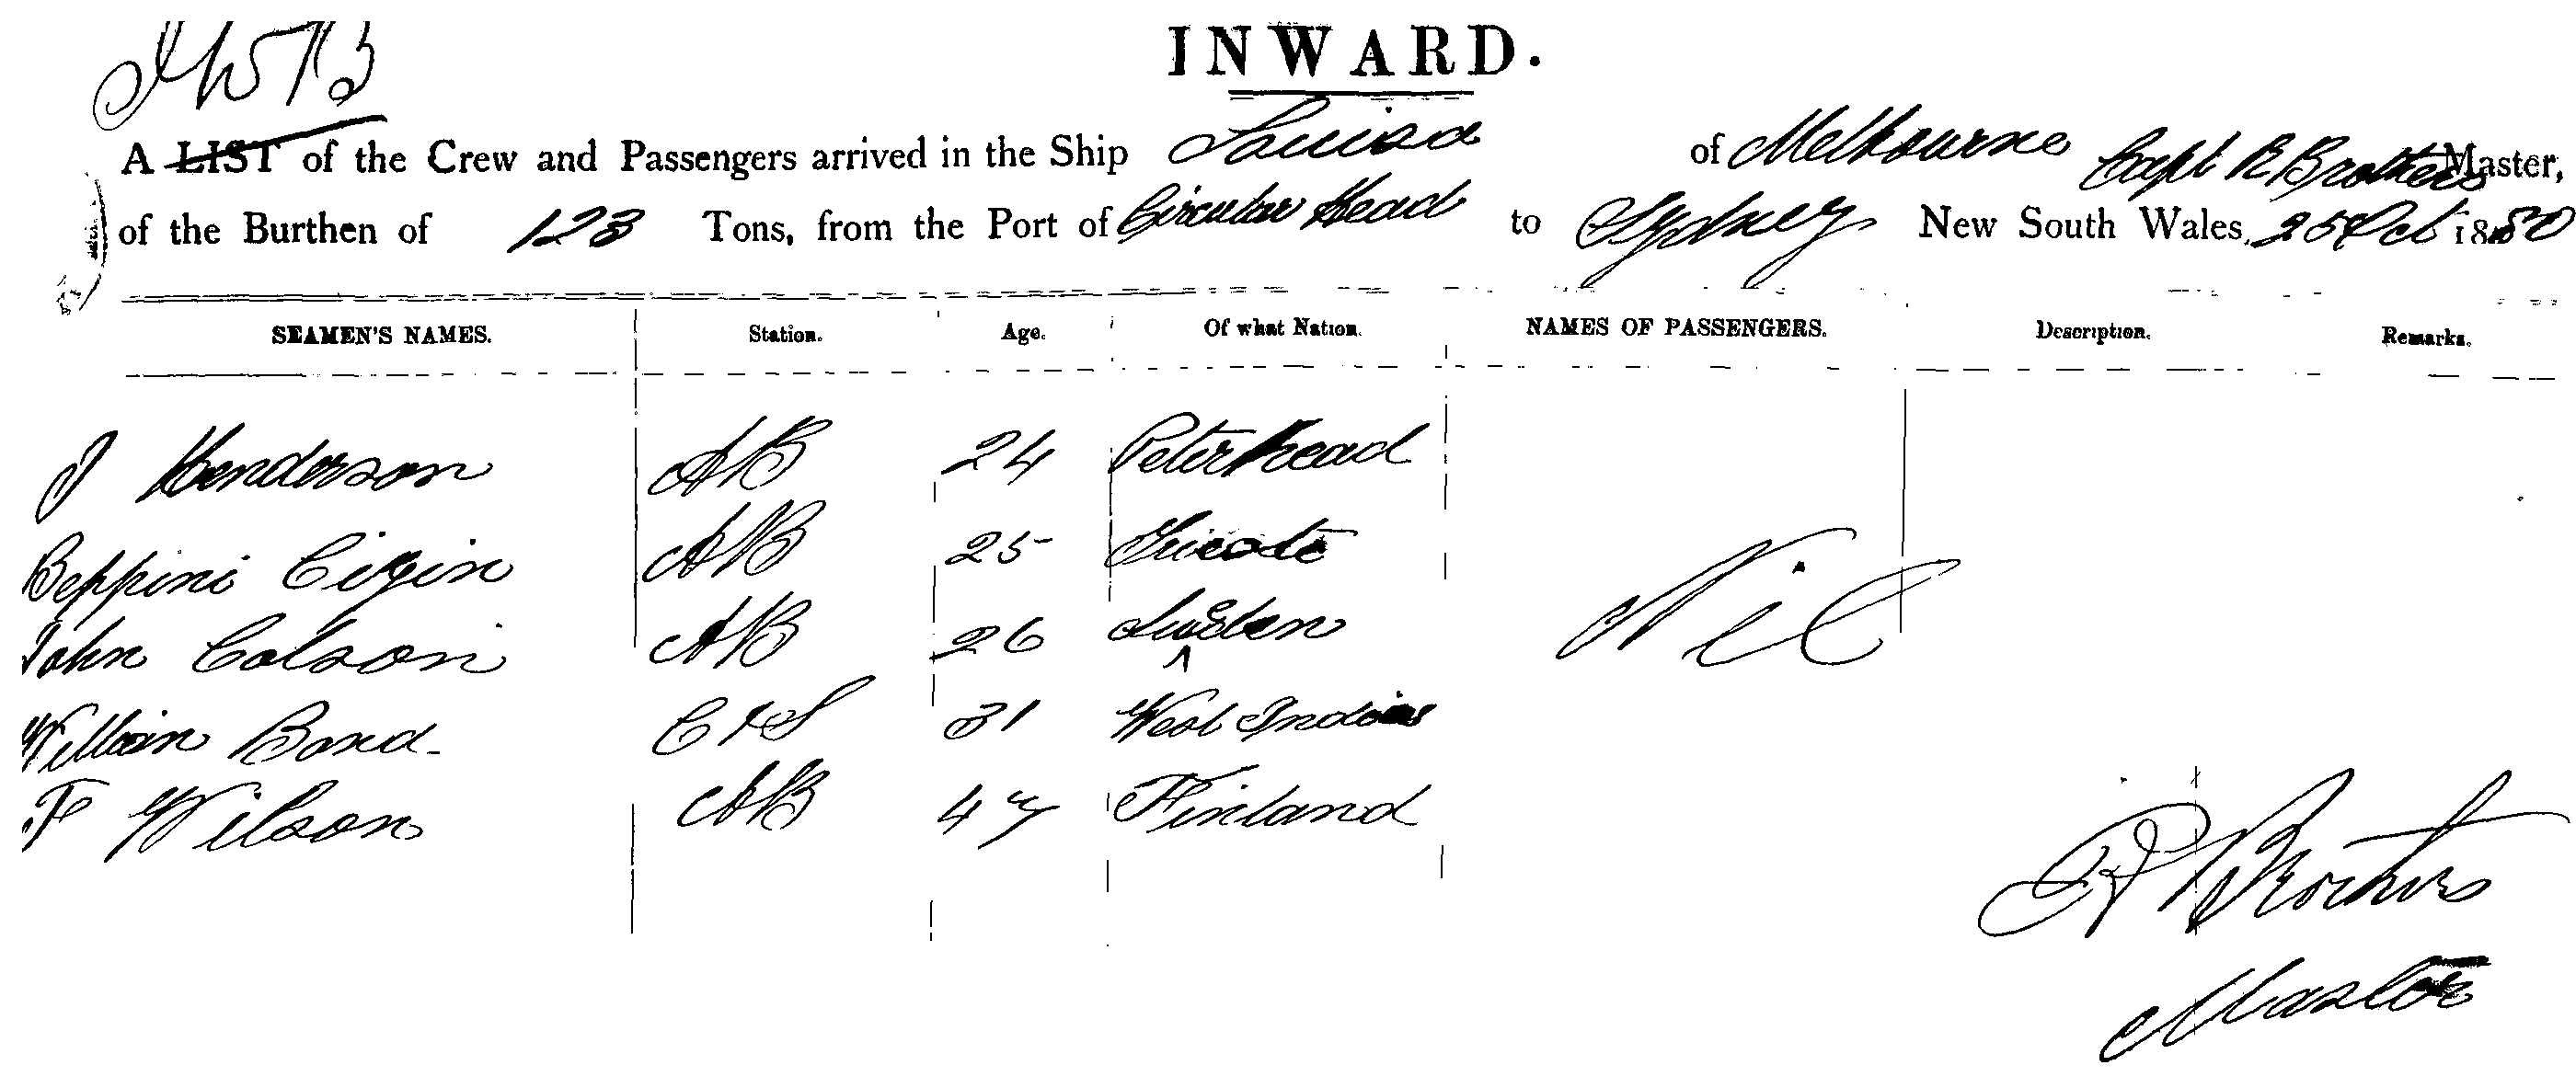 INWARD.
A LIST of the Crew and Passengers arrived in the Ship Louisa of Melbourne Capt R Brothers Master,
of the Burthen of 123 Tons, from the Port of Circular Head to Sydney New South Wales, 25 Oct 1880
SEAMEN'S NAMES. Station. Age. Of what Nation. NAMES OF PASSENGERS. Description. Remarks.
J Henderson AB 24 Peterhead
Beppini AB 25
John Colson AB 26 Sweden
Nil
William Bond C & S 31 West Indies
F Wilson AB 47 Finland
R Brothers
Master